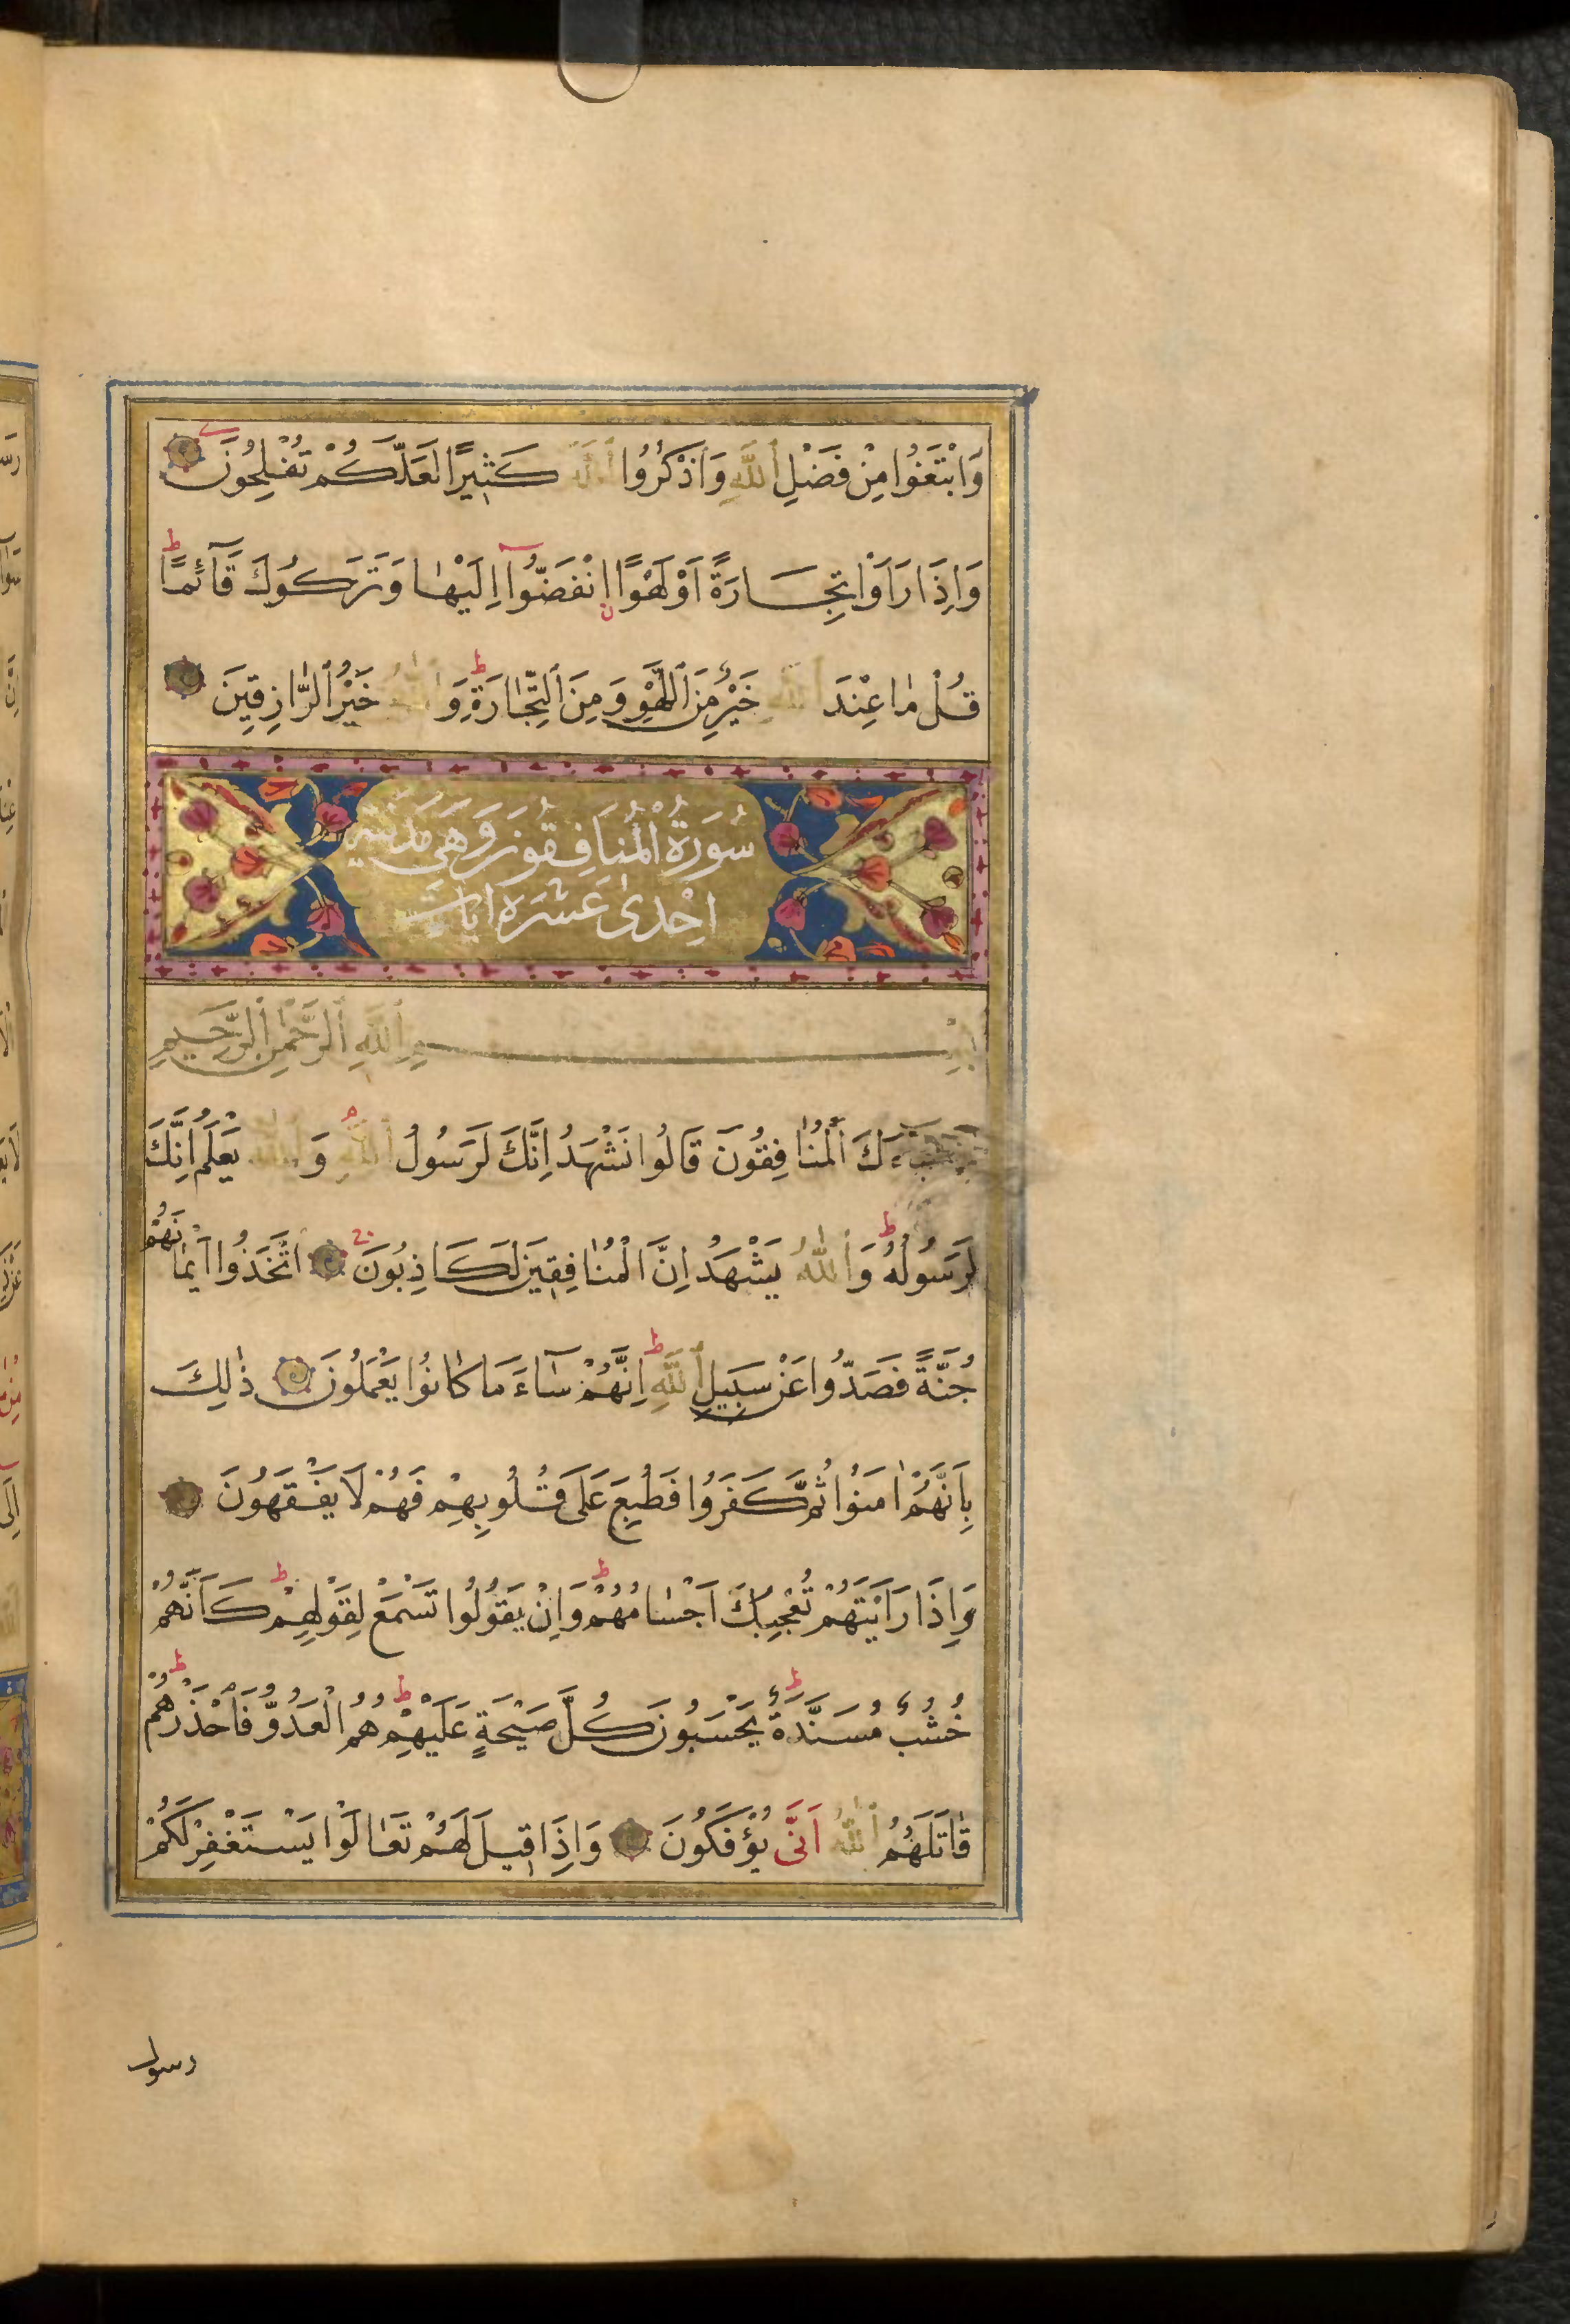 وَابْتَغُوا مِنْ فَضْلِ اللّٰهِ وَاذْكُرُوا اللّٰهَ كَثِيرًا لَعَلَّكُمْ تُفْلِحُونَ
وَاِذَا رَاَوْا تِجَارَةً اَوْ لَهْوًا انْفَضُّوآ اِلَيْهٰا وَتَرَكُوكَ قَآئِمًا
قُلْ مٰا عِنْدَ اللّٰهِ خَيْرٌ مِنَ اللَّهْوِ وَمِنَ التِّجٰارَةِ وَاللّٰهُ خَيْرُ الرّٰازِقِينَ
سُورَةُ الْمُنٰافِقُونَ وَهِىَ مَدَنِيَّة
اِحْدىٰ عَشْرَه اٰيات
بِسْمِ اللّٰهِ الرَّحْمٰنِ الرَّحِيمِ
جَآءَكَ الْمُنٰافِقُونَ قَالُوا نَشْهَدُ اِنَّكَ لَرَسُولُ اللّٰهِ وَاللّٰهُ يَعْلَمُ اِنَّكَ
لَرَسُولُهُ وَاللّٰهُ يَشْهَدُ اِنَّ الْمُنٰافِقِينَ لَكَاذِبُونَ اتَّخَذُوا اَيْمٰانَهُمْ
جُنَّةً فَصَدُّوا عَنْ سَبِيلِ اللّٰهِ اِنَّهُمْ سَآءَ مَا كٰانُوا يَعْمَلُونَ ذٰلِكَ
بِاَنَّهُمْ اٰمَنُوا ثُمَّ كَفَرُوا فَطُبِعَ عَلَى قُلُوبِهِمْ فَهُمْ لَا يَفْقَهُونَ
وَاِذَا رَاَيْتَهُمْ تُعْجِبُكَ اَجْسٰامُهُمْ وَاِنْ يَقُولُوا تَسْمَعْ لِقَوْلِهِمْ كَاَنَّهُمْ
خُشُبٌ مُسَنَّدَةٌ يَحْسَبُونَ كُلَّ صَيْحَةٍ عَلَيْهِمْ هُمُ الْعَدُوُّ فَاحْذَرْهُمْ
قٰاتَلَهُمُ اللّٰهُ اَنّٰى يُؤْفَكُونَ وَاِذَا قِيلَ لَهُمْ تَعٰالَوْا يَسْتَغْفِرْ لَكُمْ
رسول